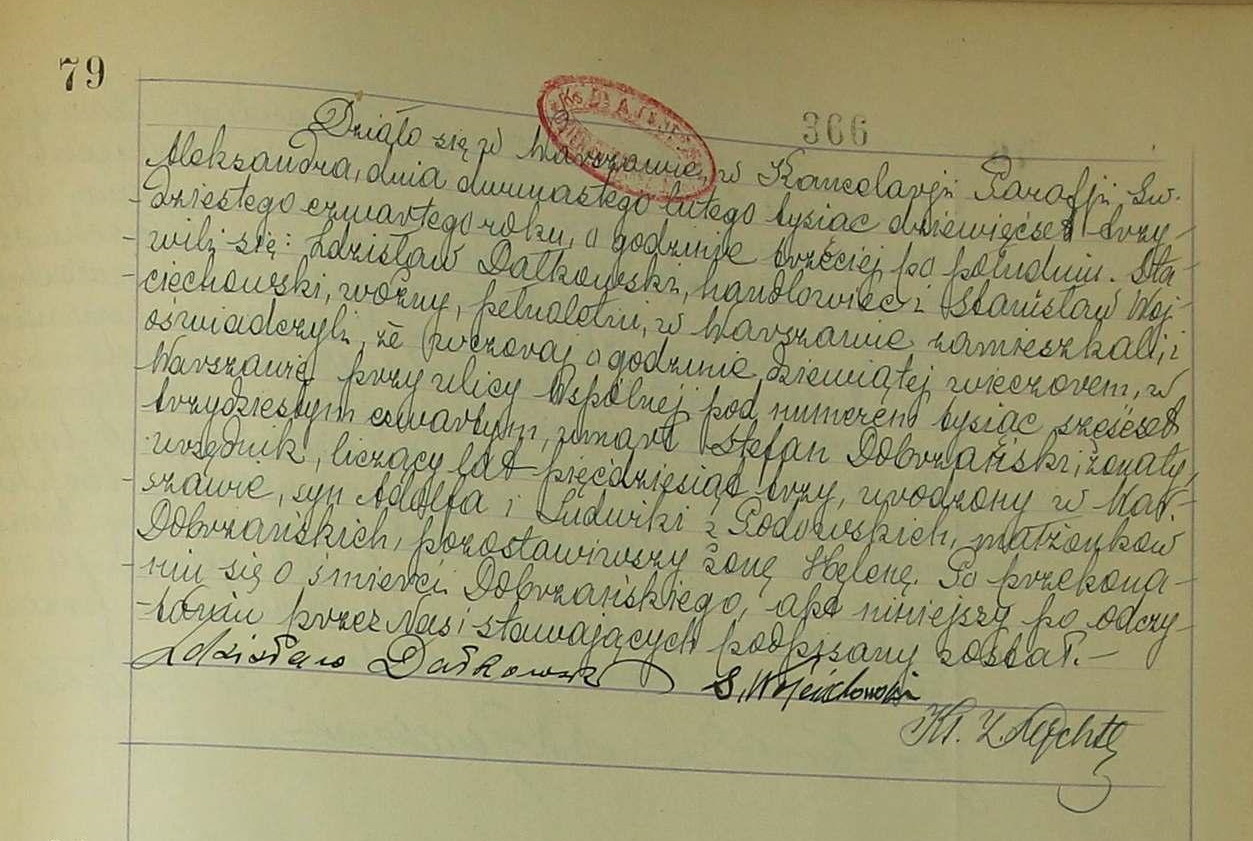 79
366
Działo się w Warszawie, w Kancelarji Parafji Św.
Aleksandra, dnia dwunastego lutego tysiąc dziewięćset trzy-
dziestego czwartego roku, o godzinie trzeciej po południu. Sta-
wili się: Zdzisław Dałkowski, handlowiec i Stanisław Woj-
ciechowski, woźny, pełnoletni, w Warszawie zamieszkali, i
oświadczyli, że wczoraj o godzinie dziewiątej wieczorem, w
Warszawie przy ulicy Wspólnej pod numerem tysiąc sześćset
trzydziestym czwartym, umarł Stefan Dobrzański, żonaty,
urzędnik, liczący lat pięćdziesiąt trzy, urodzony w War-
szawie, syn Adolfa i Ludwiki z Godowskich, małżonków
Dobrzańskich, pozostawiwszy żonę Helenę. Po przekona-
niu się o śmierci Dobrzańskiego, akt niniejszy po odczy-
taniu przez Nas i stawających podpisany został.—
Zdzisław Dałkowski S. Wojciechowski